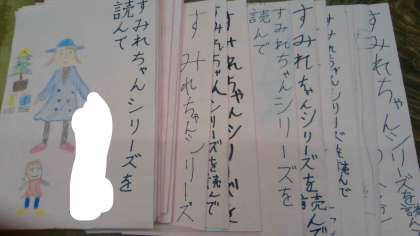 すみれちゃんシリーズ
すみれちゃんシリーズを読んで
すみれちゃんシリーズを読んで
すみれちゃんシリーズを
読んで
すみれちゃんシリーズを
すみれちゃんシリーズを読んで
すみれちゃんシリーズ
すみれちゃんシリーズを
読んで